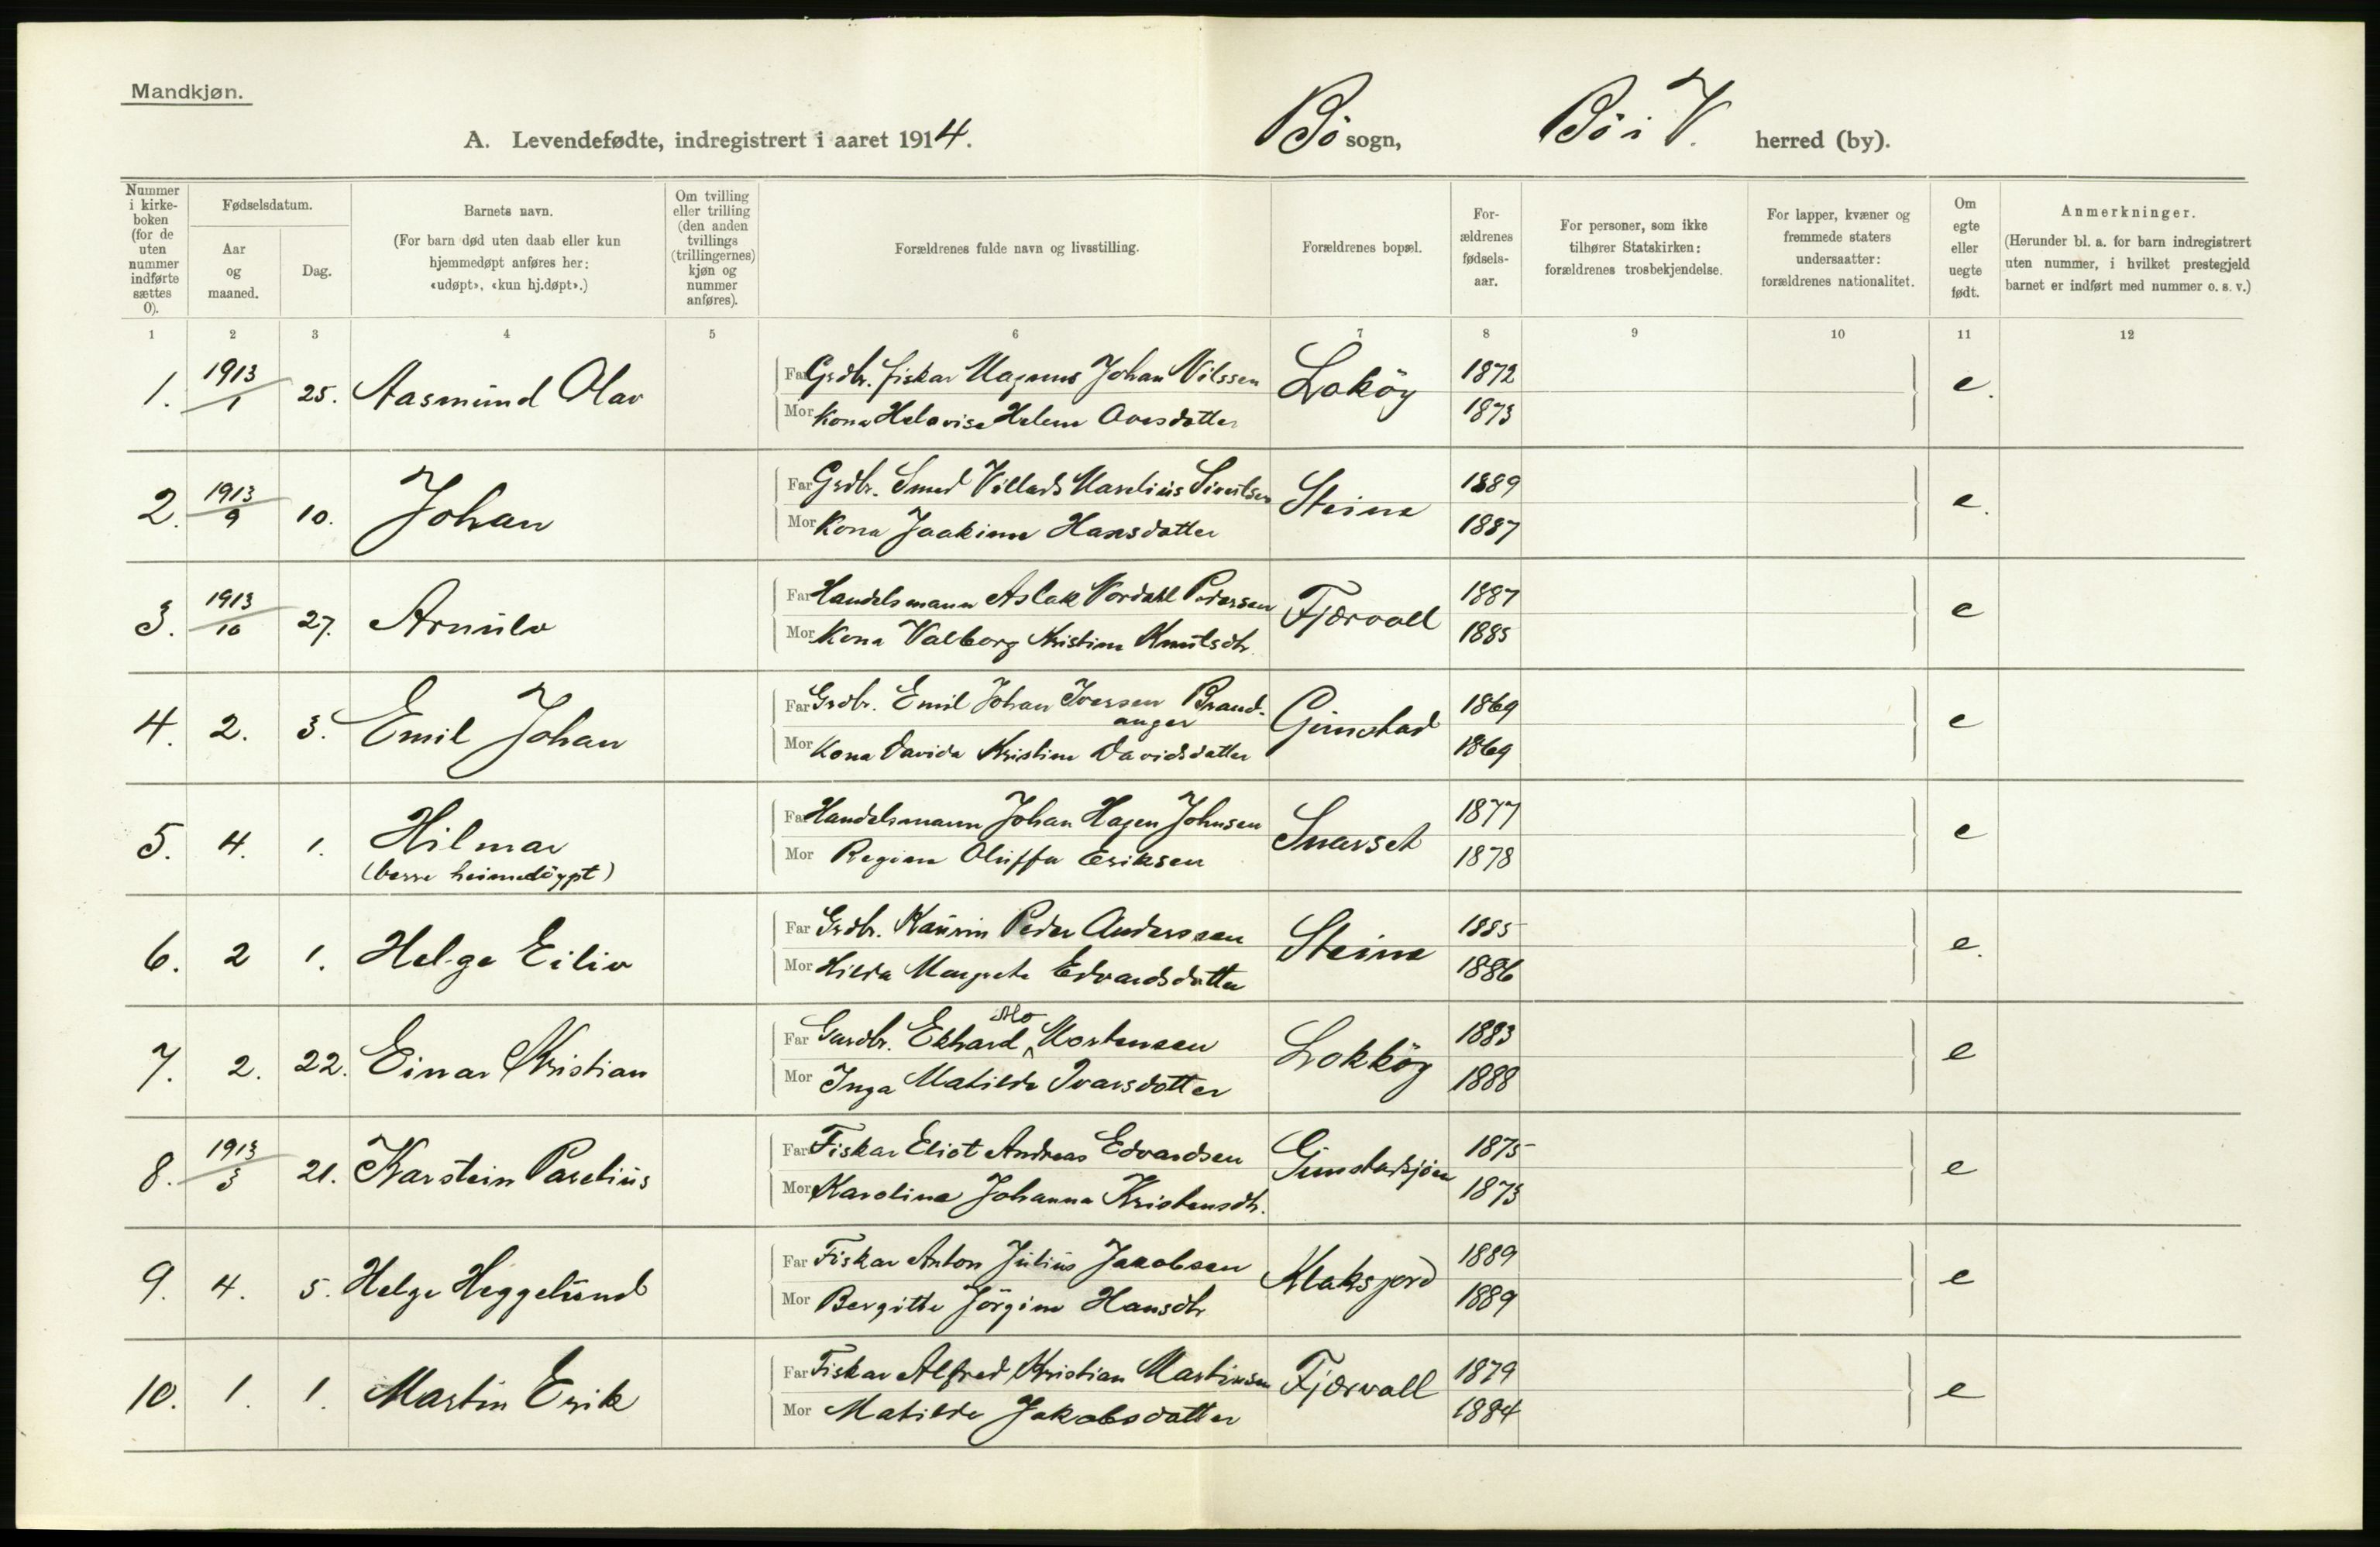 Mandkjøn.
A. Levendefødte, indregistrert i aaret 1914.
Bö sogn, Bö i V. herred (by).
Nummer i kirke-boken (for de uten nummer indførte sættes 0).
Fødselsdatum.
Aar og maaned.
Dag.
Barnets navn.
(For barn død uten daab eller kun hjemmedøpt anføres her: «udøpt», «kun hj.døpt».)
Om tvilling eller trilling (den anden tvillings (trillingernes) kjøn og nummer anføres).
Forældrenes fulde navn og livsstilling.
Forældrenes bopæl.
For-ældrenes fødsels-aar.
For personer, som ikke tilhører Statskirken: forældrenes trosbekjendelse.
For lapper, kvæner og fremmede staters undersaatter: forældrenes nationalitet.
Om egte eller uegte født.
Anmerkninger.
(Herunder bl. a. for barn indregistrert uten nummer, i hvilket prestegjeld barnet er indført med nummer o. s. v.)
1 2 3 4 5 6 7 8 9 10 11 12
1. 1913/1 25. Aasmund Olav Far Grdbr. fiskar Magnus Johan Nilssen Loköy 1872 e.
Mor Kona Helovise Helene Ovesdotter 1873
2. 1913/9 10. Johan Far Grdbr. Smed Villads Marelius Sivertsen Steine 1889 e.
Mor Kona Joakime Hansdatter 1887
3. 1913/10 27. Arnulv Far Handelsmann Aslak Nordahl Pedersen Fjærvoll 1887 e
Mor Kona Valborg Kristine Knutsdtr. 1885
4. 2. 3. Emil Johan Far Grdbr. Emil Johan Iversen Brand-anger Gimstad 1869 e
Mor Kona Davida Kristine Davidsdatter 1869
5. 4. 1. Hilmar Far Handelsmann Johan Hagen Johnsen Snarset 1877 e
(berre heimedöypt) Mor Regine Oluffa Eriksen 1878
6. 2 1. Helge Eiliv Far Grdbr. Kaurin Peder Anderssen Steine 1885 e.
Mor Hilda Margrete Edvardsdatter 1886
7. 2. 22. Einar Kristian Far Gardbr. Ekhard Mo Mortensen Lokköy 1883 e
Mor Inga Matilde Ivarsdotter 1888
8. 1913/3 21. Karstein Parelius Far Fiskar Eliot Andreas Edvardsen Gimstadsjöen 1875 e
Mor Karoline Johanna Kristensdtr. 1873
9. 4. 5. Helge Heggelund Far Fiskar Anton Julius Jakobsen Klaksjord 1889 e
Mor Bergitte Jörgine Hansdtr 1889
10. 1. 1. Martin Erik Far Fiskar Alfred Kristian Martinsen Fjærvoll 1879 e
Mor Matilde Jakobsdatter 1884